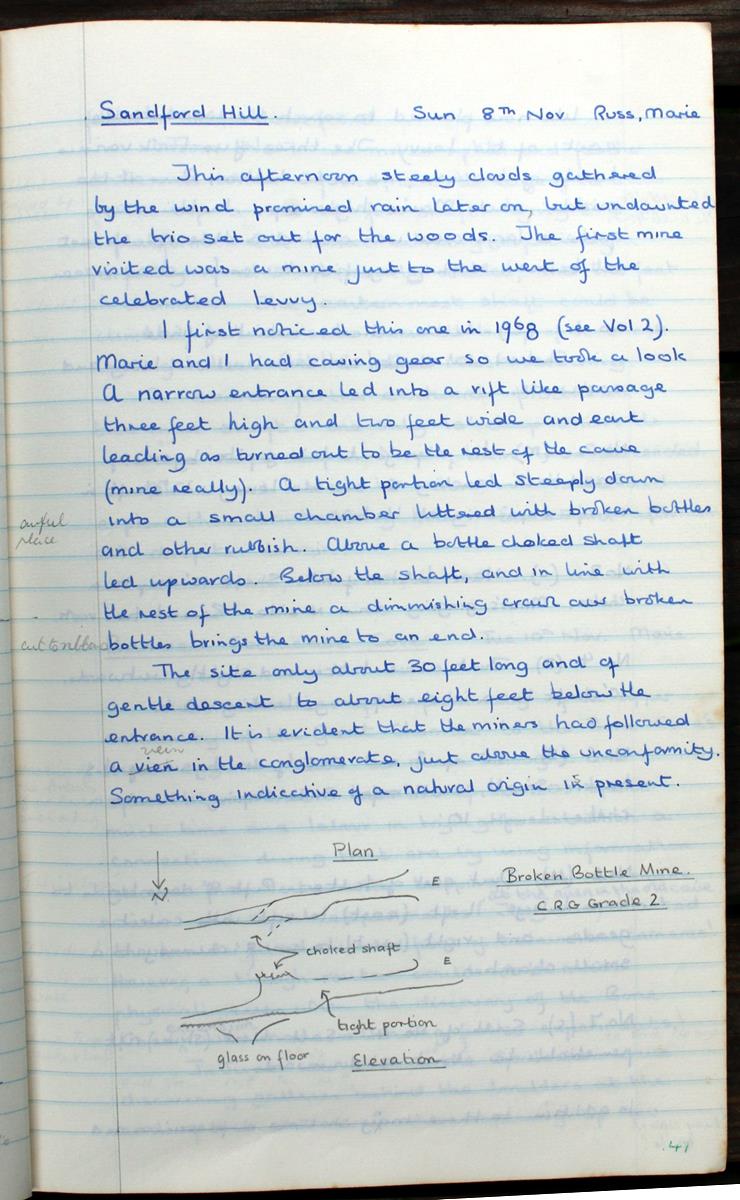 Sandford Hill. Sun 8th Nov Russ, Marie
This afternoon steely clouds gathered
by the wind promised rain later on, but undaunted
the trio set out for the woods. The first mine
visited was a mine just to the west of the
celebrated Levvy.
I first noticed this one in 1968 (see Vol 2).
Marie and I had caving gear so we took a look
A narrow entrance led into a rift like passage
three feet high and two feet wide and east
leading as turned out to be the rest of the cave
(mine really). A tight portion led steeply down
awful
place
into a small chamber littered with broken bottles
and other rubbish. Above a bottle choked shaft
led upwards. Below the shaft, and in line with
the rest of the mine a diminishing crawl over broken
bottles brings the mine to an end.
The site only about 30 feet long and of
gentle descent to about eight feet below the
entrance. It is evident that the miners had followed
vein
a vien in the conglomerate, just above the unconformity.
Something indicative of a natural origin is present.
Plan
N
E
Broken Bottle Mine.
C.R.G Grade 2
choked shaft
E
tight portion
glass on floor
Elevation
47